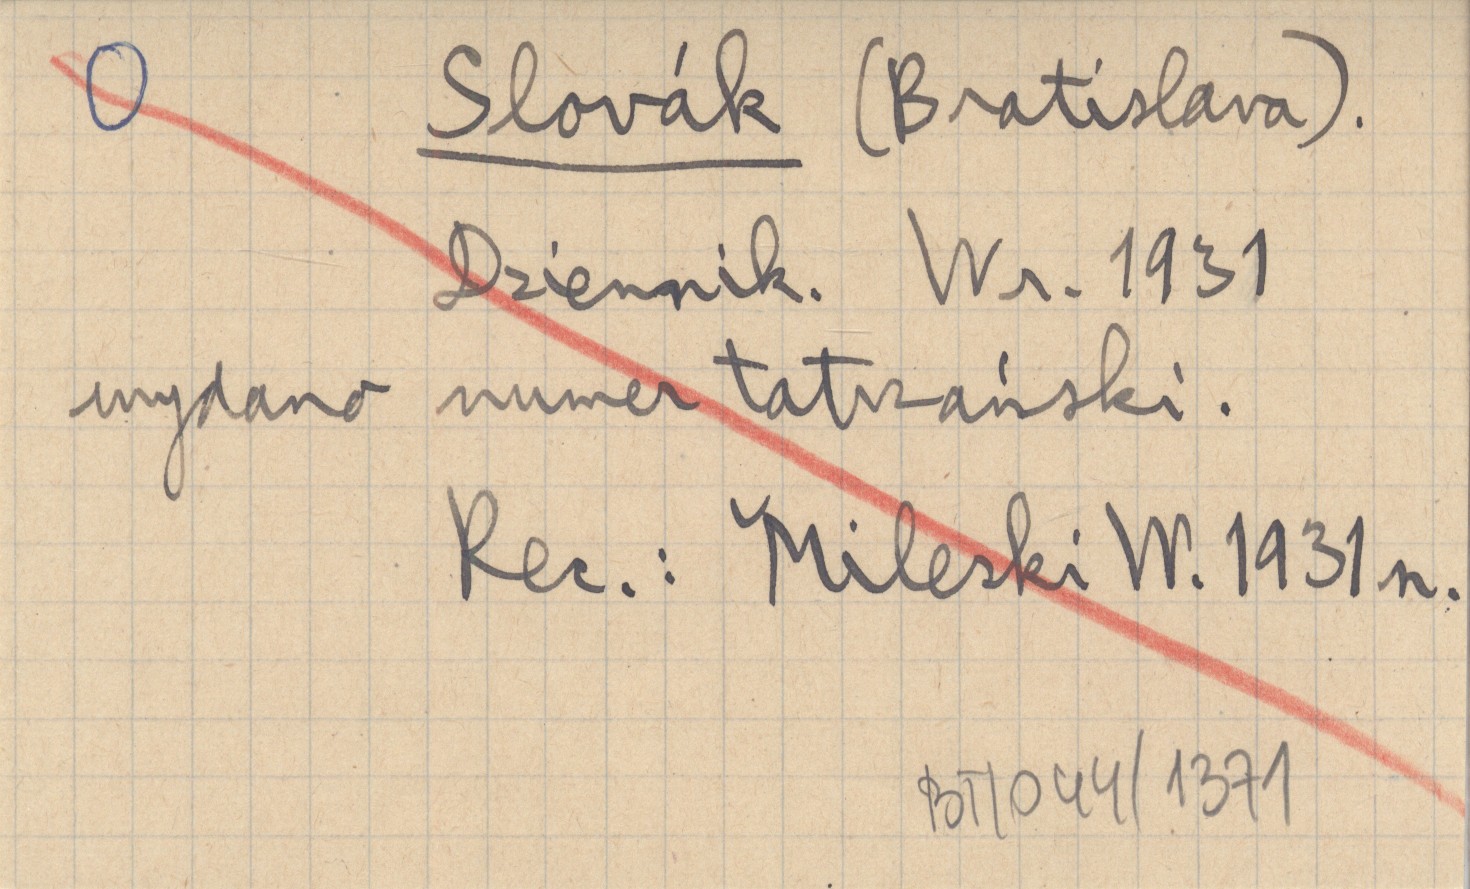 O Slovák (Bratislava).
Dziennik. W r. 1931
wydano numer tatrzański.
Rec.: Mileski W. 1931 n.
BT/044/1371